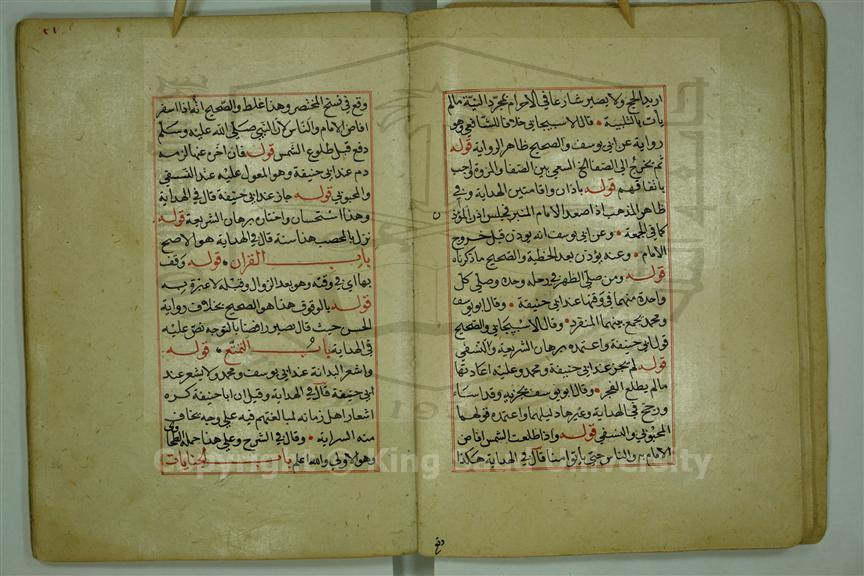 اريد الحج ولا يصير شارعا في الاحرام بمجرد النية مالم
يات بالتلبية • قال الاسبيجابي خلافا للشافعي وهو
رواية عن ابي يوسف والصحيح ظاهر الرواية قوله
ثم يخرج الى الصفا الخ السعي بين الصفا والمروة واجب
باتفاقهم قوله باذان واقامتين الهداية وفي
ظاهر المذهب اذا صعد الامام المنبر فجلس اذن المؤذن
كما في الجمعة • وعن ابي يوسف انه يوذن قبل خروج
الامام • وعنه يوذن بعد الخطبة والصحيح ما ذكرناه
قوله ومن صلى الظهر في رحله وحده وصلى كل
واحدة منهما في وقتها عند ابي حنيفة • وقال ابو يوسف
ومحمد يجمع بينهما المنفرد • وقال الاسبيجابي والصحيح
قول ابي حنيفة واعتمده برهان الشريعة والنسفي
قوله لم يجز عند ابي حنيفة ومحمد وعليه اعادتها
مالم يطلع الفجر • وقال ابو يوسف يجزيه وقد اساء
ورجح في الهداية وغيرها دليلهما واعتمده قولهما
المحبوبي والنسفي قوله واذا طلعت الشمس افاض
الامام والناس حتى ياتوا منا قال في الهداية هكذا
وقع
٢١
وقع في نسخ المختصر وهذا غلط والصحيح انه اذا اسفر
افاض الامام والناس لان النبي صلى الله عليه وسلم
دفع قبل طلوع الشمس قوله فان اخره عنها لزمه
دم عند ابي حنيفة وهو المعول عليه عند النسفي
والمحبوبي قوله جاز عند ابي حنيفة قال في الهداية
وهذا استحسان واختاره برهان الشريعة قوله
نزل بالمحصب هذا سنة قال في الهداية هو الاصح
باب القران • قوله وقف
بها اي في وقته وهو بعد الزوال وقبله لا عبرة به
قوله بالوقوف هذا هو الصحيح بخلاف رواية
الحسن حيث قال يصير رافضا بالتوجه نص عليه
في الهداية باب التمتع • قوله
واشعر البدانة عند ابي يوسف ومحمد ولا يشعر عند
ابي حنيفة قال في الهداية وقيل ان ابا حنيفة كره
اشعار اهل زمانه لمبالغتهم فيه على وجه يخاف
منه السراية • وقال في الشرح وعلى هذا حمله الطحاوي
وهو الاولى والله اعلم باب الجنايات
Copyright © King Saud University